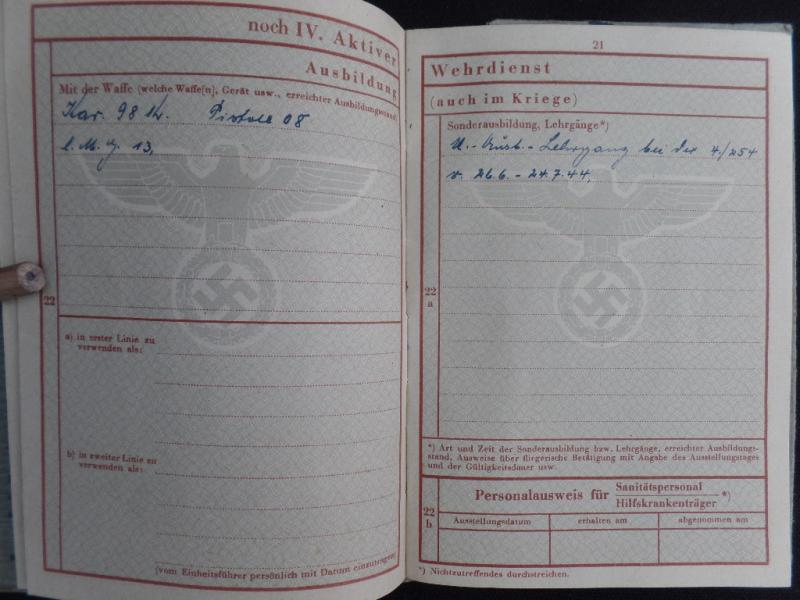 noch IV. Aktiver
Ausbildung
Mit der Waffe (welche Waffe[n], Gerät usw., erreichter Ausbildungsstand)
Kar. 98 k. Pistole 08
l. M. G. 13,
22
a) in erster Linie zu
verwenden als:
b) in zweiter Linie zu
verwenden als:
(vom Einheitsführer persönlich mit Datum einzutragen)
21
Wehrdienst
(auch im Kriege)
Sonderausbildung, Lehrgänge*)
U.- - Lehrgang bei der 4/254
v. 26.6. - 24.7.44,
22
a
*) Art und Zeit der Sonderausbildung bzw. Lehrgänge, erreichter Ausbildungs-
stand, Ausweise über fliegerische Betätigung mit Angabe des Ausstellungstages
und der Gültigkeitsdauer usw.
22
b
Personalausweis für Sanitätspersonal *)
Hilfskrankenträger
Ausstellungsdatum erhalten am abgenommen am
*) Nichtzutreffendes durchstreichen.